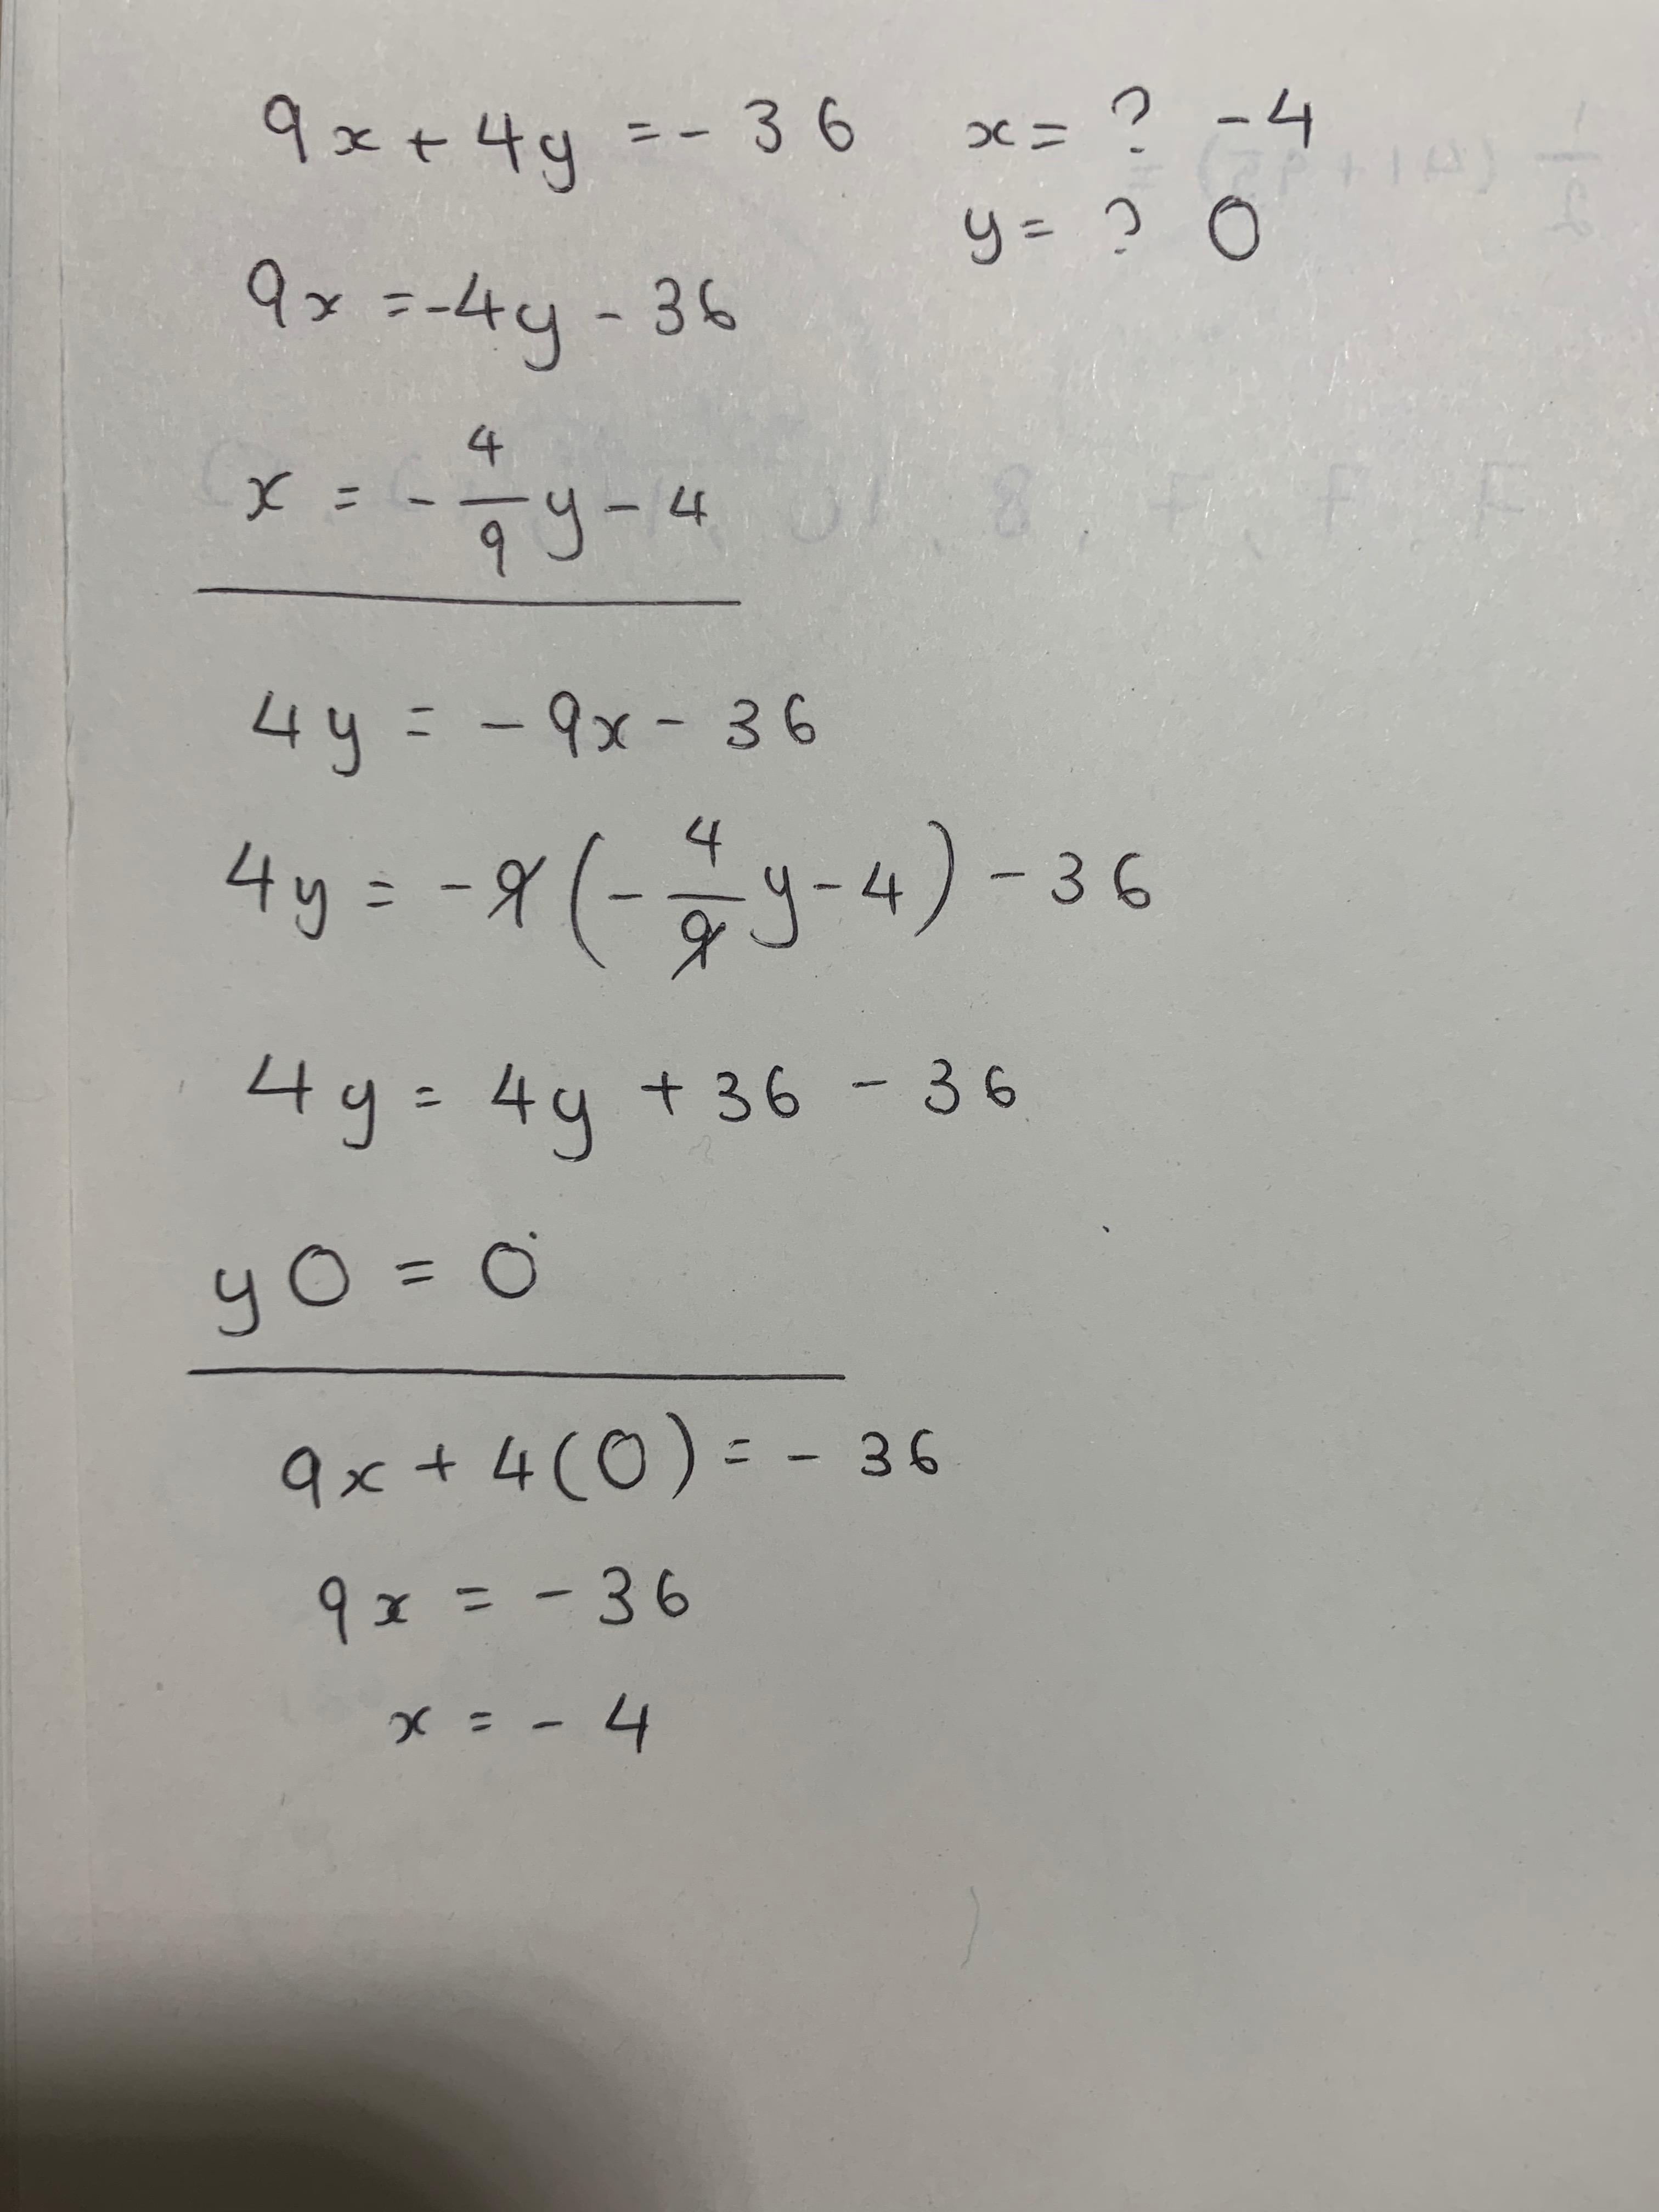 9x + 4y = - 36   x = ? -4
y = ? 0
9x = -4y - 36
x = - 4/9 y - 4
4y = - 9x - 36
4y = - 9 ( - 4/9 y - 4 ) - 36
4y = 4y + 36 - 36
y0 = 0
9x + 4(0) = - 36
9x = - 36
x = - 4